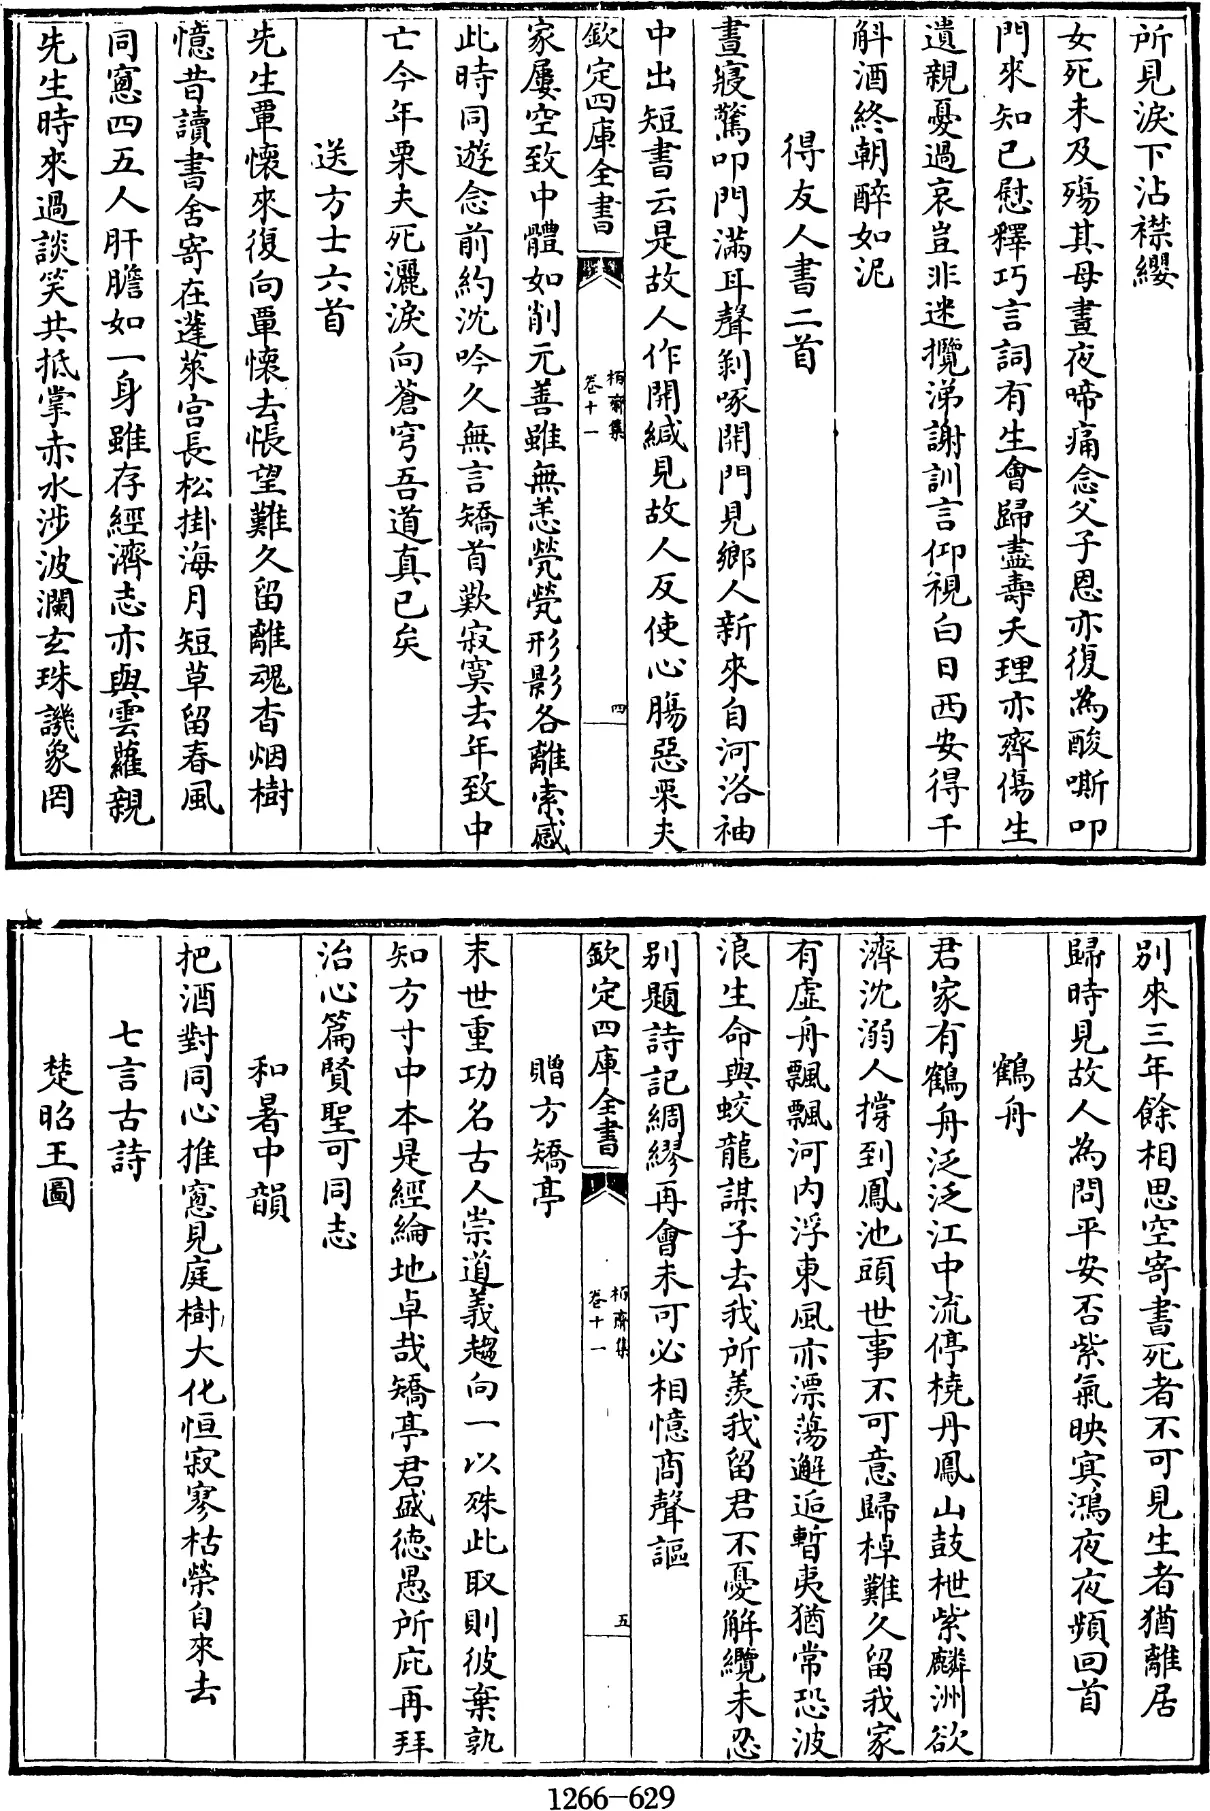 所見淚下沾襟纓
女死未及殤其母晝夜啼痛念父子恩亦復為酸嘶叩
門來知己慰釋巧言詞有生會歸盡壽夭理亦齊傷生
遺親憂過哀豈非迷攬涕謝訓言仰視白日西安得千
斛酒終朝醉如泥
得友人書二首
晝寢驚叩門滿耳聲剝啄開門見鄉人新來自河洛袖
中出短書云是故人作開緘見故人反使心腸惡栗夫
欽定四庫全書
栢齋集
卷十一
四
家屢空致中體如削元善雖無恙煢煢形影各離索感
此時同遊念前約沈吟久無言矯首歎寂寞去年致中
亡今年栗夫死灑淚向蒼穹吾道真已矣
送方士六首
先生覃懷來復向覃懷去悵望難久留離魂杳烟樹
憶昔讀書舍寄在蓬萊宮長松掛海月短草留春風
同窻四五人肝膽如一身雖存經濟志亦與雲蘿親
先生時來過談笑共抵掌赤水涉波瀾玄珠譏象罔
別來三年餘相思空寄書死者不可見生者猶離居
歸時見故人為問平安否紫氣映冥鴻夜夜頻回首
鶴舟
君家有鶴舟泛泛江中流停橈丹鳳山鼓枻紫麟洲欲
濟沈溺人撐到鳳池頭世事不可意歸棹難久留我家
有虛舟飄飄河内浮東風亦漂蕩邂逅暫夷猶常恐波
浪生命與蛟龍謀子去我所羨我留君不憂解纜未忍
別題詩記綢繆再會未可必相憶商聲謳
欽定四庫全書
栢齋集
卷十一
五
贈方矯亭
末世重功名古人崇道義趨向一以殊此取則彼棄孰
知方寸中本是經綸地卓哉矯亭君盛德愚所庇再拜
治心篇賢聖可同志
和暑中韻
把酒對同心推窻見庭樹大化恒寂寥枯榮自來去
七言古詩
楚昭王圖
1266—629